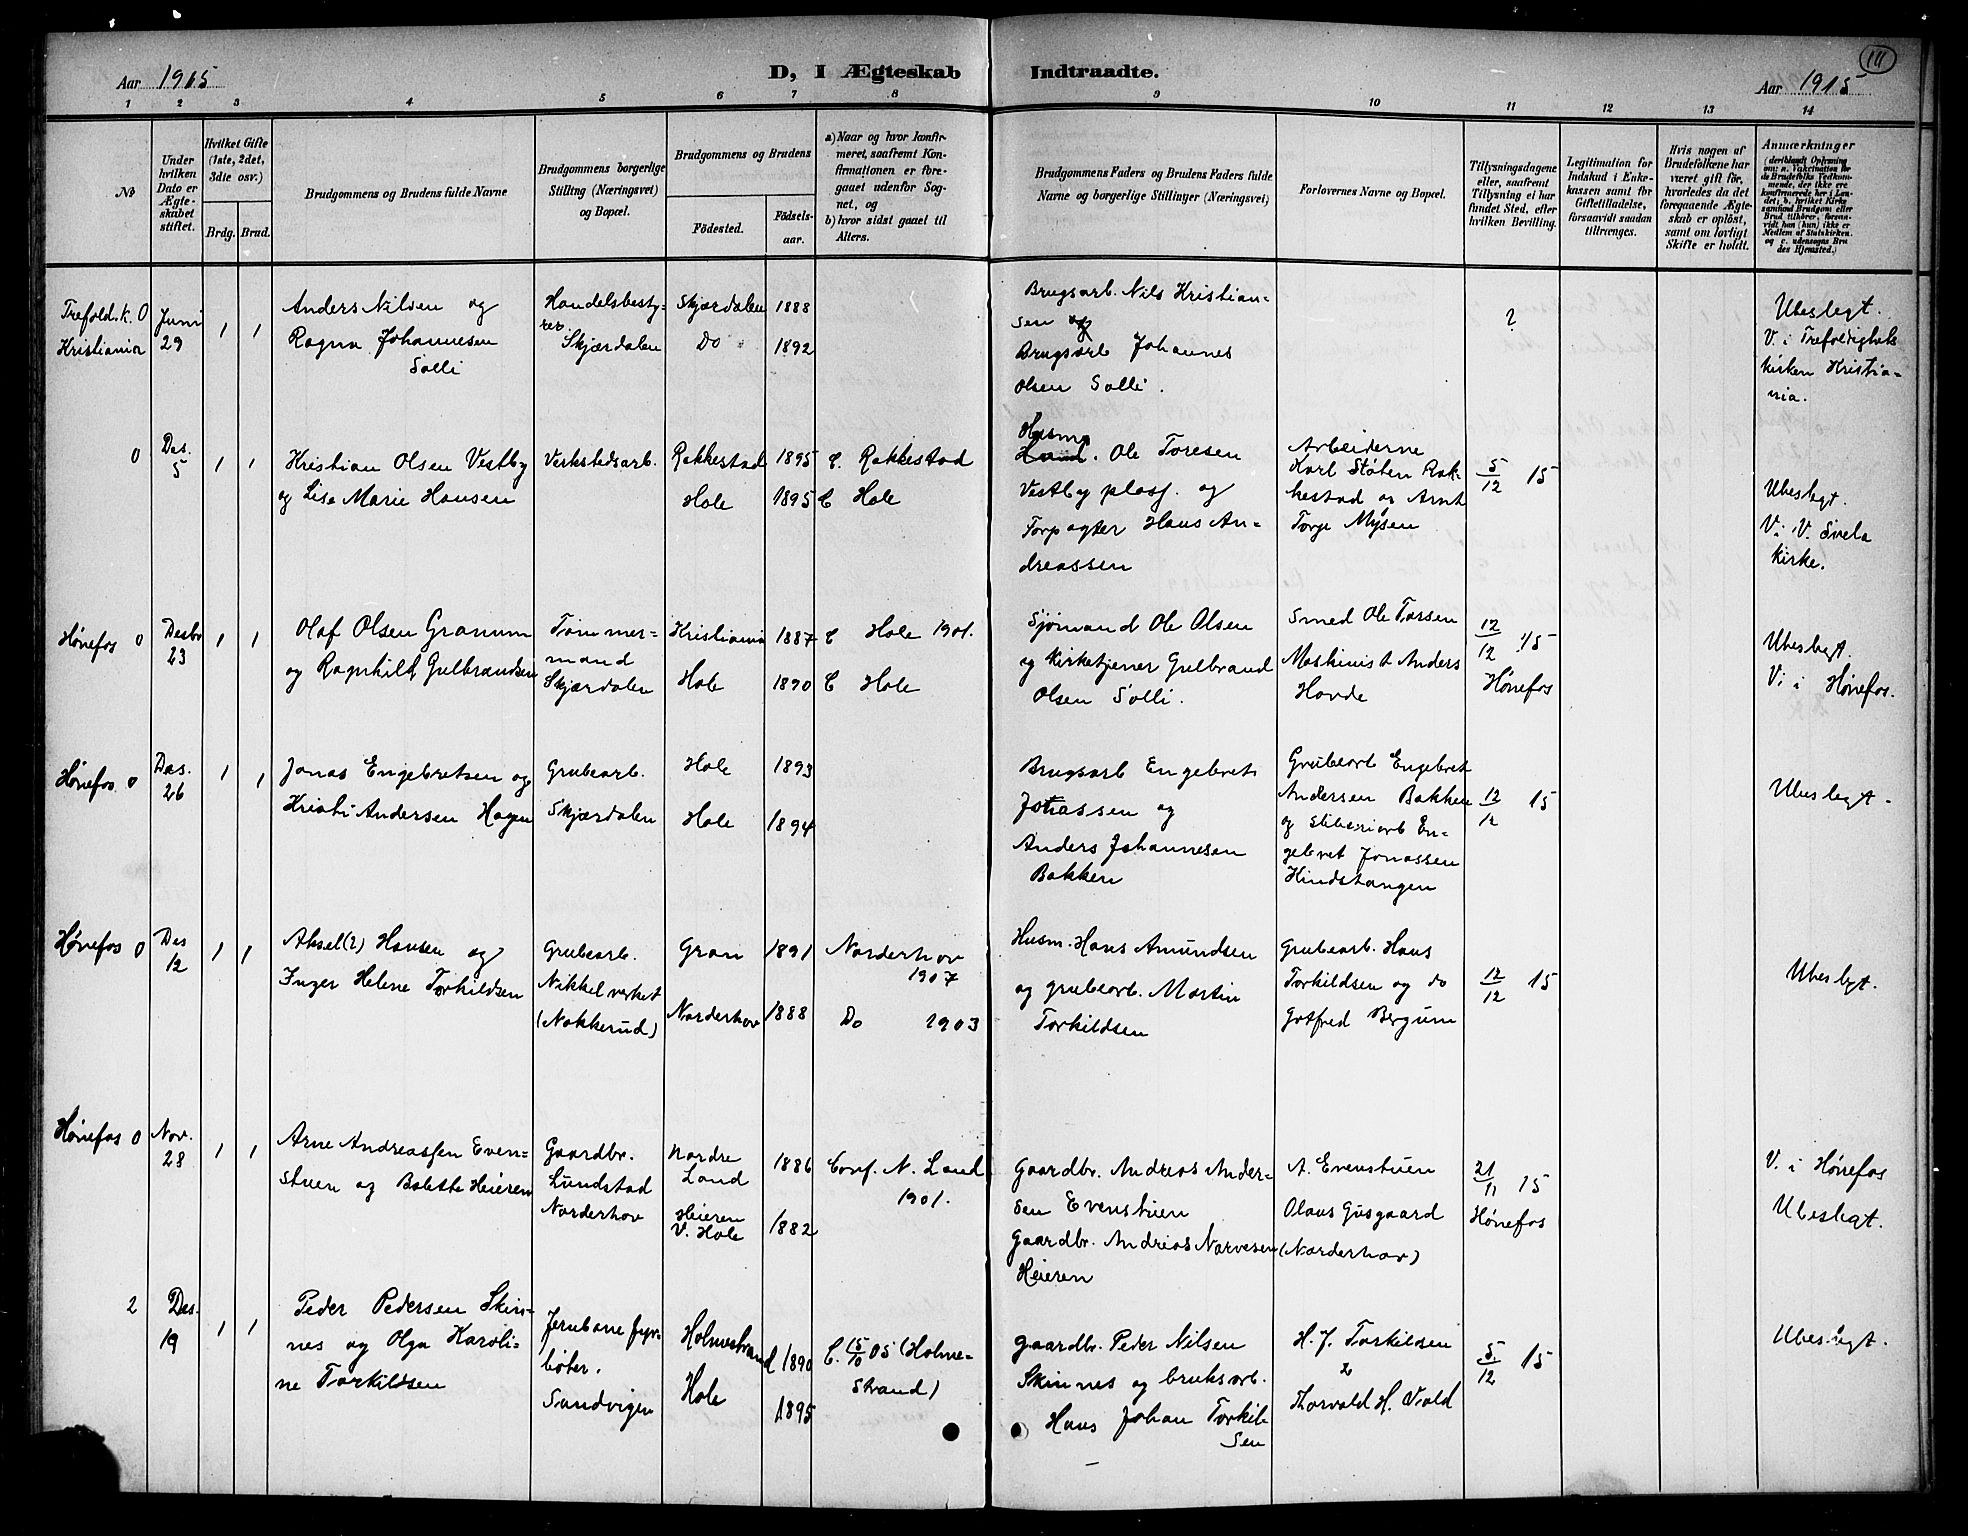 111
Aar 1915
D, I Ægteskab Indtraadte.
Aar 1915
1 2 3 4 5 6 7 8 9 10 11 12 13 14
№
Under
hvilken
Dato er
Ægte-
skabet
stiftet.
Hvilket Gifte
(1ste, 2det,
3die osv.)
Brdg. Brud.
Brudgommens og Brudens fulde Navne
Brudgommens borgerlige
Stilling (Næringsvei)
og Bopæl.
Brudgommens og Brudens
Fødested.
Fødsels-
aar.
a) Naar og hvor konfir-
meret, saafremt Kon-
firmationen er fore-
gaaet udenfor Sog-
net, og
b) hvor sidst gaaet til
Alters.
Brudgommens Faders og Brudens Faders fulde
Navne og borgerlige Stillinger (Næringsvei)
Forlovernes Navne og Bopæl.
Tillysningsdagene
eller, saafremt
Tillysning ei har
fundet Sted, efter
hvilken Bevilling.
Legitimation for
Indskud i Enke-
kassen samt for
Giftetilladelse,
forsaavidt saadan
tiltrænges.
Hvis nogen af
Brudefolkene har
været gift før,
hvorledes da det
foregaaende Ægte-
skab er opløst,
samt om lovligt
Skifte er holdt.
Anmærkninger
(deriblandt Oplysning
om: a. Vaccination for
de Brudefolks Vedkom-
mende, der ikke ere
konfirmerede her i Lan-
det; b. hvilket Kirke
samfund Brudgom eller
Brud tilhører, forsaa-
vidt han (hun) ikke er
Medlem af Statskirken.
og c. udensogns Bru
des Hjemsted.)
Trefold.k. 0
Kristiania
Juni
29
1 1
Anders Nilsen og
Ragna Johannesen
Solli
Handelsbesty=
rer
Skjærdalen
Skjærdalen 1888
Do 1892
Brugsarb. Nils Kristian=
sen og
Brugsarb Johannes
Olsen Solli.
?
Ubeslegt.
V. i Trefoldigheds
kirken Kristia=
nia.
0
Des.
5
1 1
Kristian Olsen Vestby
og Lisa Marie Hansen
Verkstedsarb.
Rakkestad 1895
Hole 1895
C. Rakkestad
C Hole
Husm
Ole Toresen
Vestby plasf. og
Forpagter Hans An=
dreassen
Arbeiderne
Karl Støten Rak-
kestad og Arnt
Torp Mysen
5/12 15
Ubeslegt.
V. i V. Svela
Kirke.
Hønefos 0
Desbr
23
1 1
Olaf Olsen Granum
og Ragnhild Gulbrandsen
Tømmer=
mand
Skjærdalen
Kristiania 1887
Hole 1890
C Hole 1901.
C Hole
Sjømand Ole Olsen
og Kirketjener Gulbrand
Olsen Solli.
Smed Ole Torsen
Maskinist Anders
Hovde
12/12 15
Hønefos
Ubeslegt.
V. i Hønefos.
Hønefos 0
Des.
26
1 1
Jonas Engebretsen og
Kristi Andersen Hagen
Grubearb.
Skjærdalen
Hole 1893
Hole 1894
Brugsarb Engebret
Jonassen og
Anders Johannesen
Bakken
Grubearb Engebret
Andersen Bakken
og sliberiarb En=
gebret Jonassen
Hindstangen
12/12 15
Ubeslegt.
Hønefos 0
Des
12
1 1
Aksel(?) Hansen og
Inger Helene Torkildsen
Grubearb.
Nikkelverket
(Nakkerud)
Gran 1891
Norderhov 1888
Norderhov
1907
Do 1903
Husm. Hans Amundsen
og grubearb. Martin
Torkildsen
Grubearb. Hans
Torkildsen og do
Gotfred Bergum
12/12 15
Ubeslegt.
Hønefos 0
Nov.
28
1 1
Arne Andreassen Even=
stuen og Bolette Heieren
Gaardbr.
Lundstad
Norderhov
Nordre
Land 1886
Heieren
V. Hole 1882
Conf. N. Land
1901.
Gaardbr. Andreas Ander-
sen Evenstuen
Gaardbr. Andreas Narvesen
Heieren
A. Evenstuen
Olaus Gusgaard
(Norderhov)
21/11 15
Hønefos
V. i Hønefos
Ubeslegt.
2
Des.
19
1 1
Peder Pedersen Skin=
nes og Olga Karoli=
ne Torkildsen
Jernbanefyr=
bøter.
Sandvigen
Holmestrand 1890
Hole 1895
C. 15/10 05 (Holme=
strand)
Gaardbr. Peder Nilsen
Skinnes og bruksarb.
Hans Johan Torkild
sen
H. J. Torkildsen
&
Thorvald H. Vold
5/12 15
Ubeslegt.